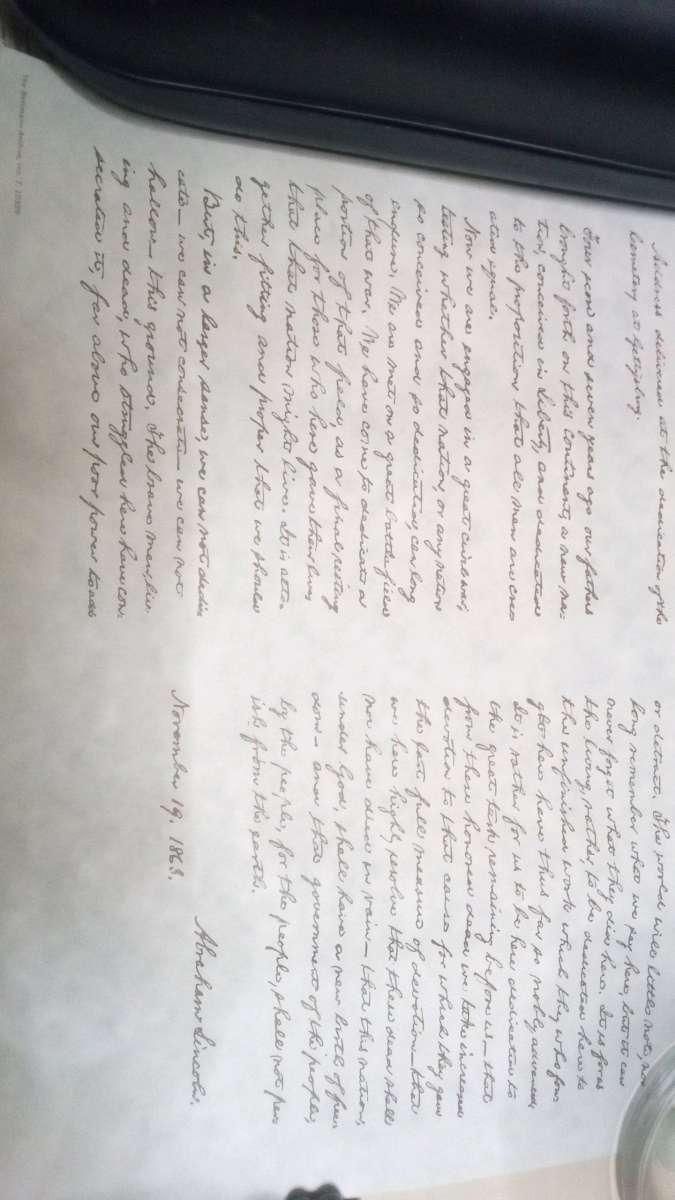 Address delivered at the dedication of the
Cemetery at Gettysburg.
Four score and seven years ago our fathers
brought forth on this continent, a new na-
tion, conceived in Liberty, and dedicated
to the proposition that all men are cre-
ated equal.
Now we are engaged in a great civil war,
testing whether that nation, or any nation
so conceived and so dedicated, can long
endure. We are met on a great battle field
of that war. We have come to dedicate a
portion of that field, as a final resting
place for those who here gave their lives
that that nation might live. It is alto-
gether fitting and proper that we should
do this.
But, in a larger sense, we can not dedi-
cate— we can not consecrate— we can not
hallow— this ground. The brave men, liv-
ing and dead, who struggled here have con-
secrated it, far above our poor power to add
or detract. The world will little note, nor
long remember what we say here, but it can
never forget what they did here. It is for us
the living, rather, to be dedicated here to
the unfinished work which they who fou-
ght here have thus far so nobly advanced.
It is rather for us to be here dedicated to
the great task remaining before us— that
from these honored dead we take increased
devotion to that cause for which they gave
the last full measure of devotion— that
we here highly resolve that these dead shall
not have died in vain— that this nation,
under God, shall have a new birth of free-
dom— and that government of the people,
by the people, for the people, shall not per-
ish from the earth.
Abraham Lincoln.
November 19. 1863.
The Bettmann Archive, Inc.